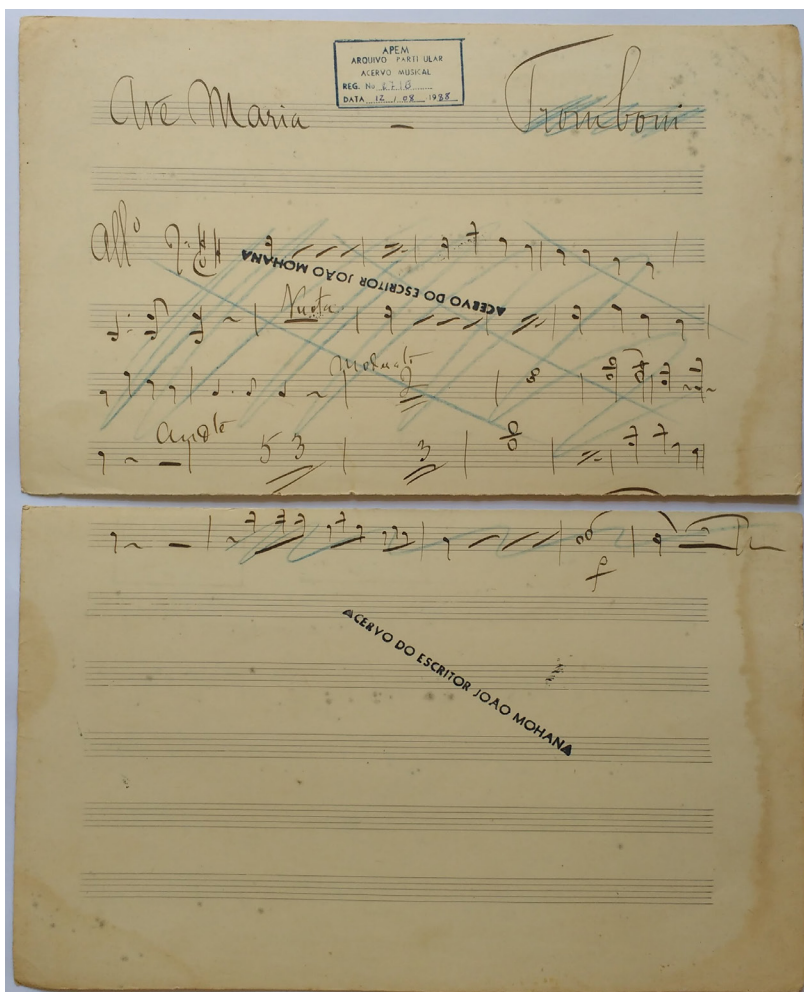 APEM
ARQUIVO PARTI ULAR
ACERVO MUSICAL
REG. No 271B
DATA 12 / 08 1988
Ave Maria - Tromboni
Allº
ACERVO DO ESCRITOR JOÃO MOHANA
Nuota
Moderato
2
Andte 53 3
f
ACERVO DO ESCRITOR JOÃO MOHANA